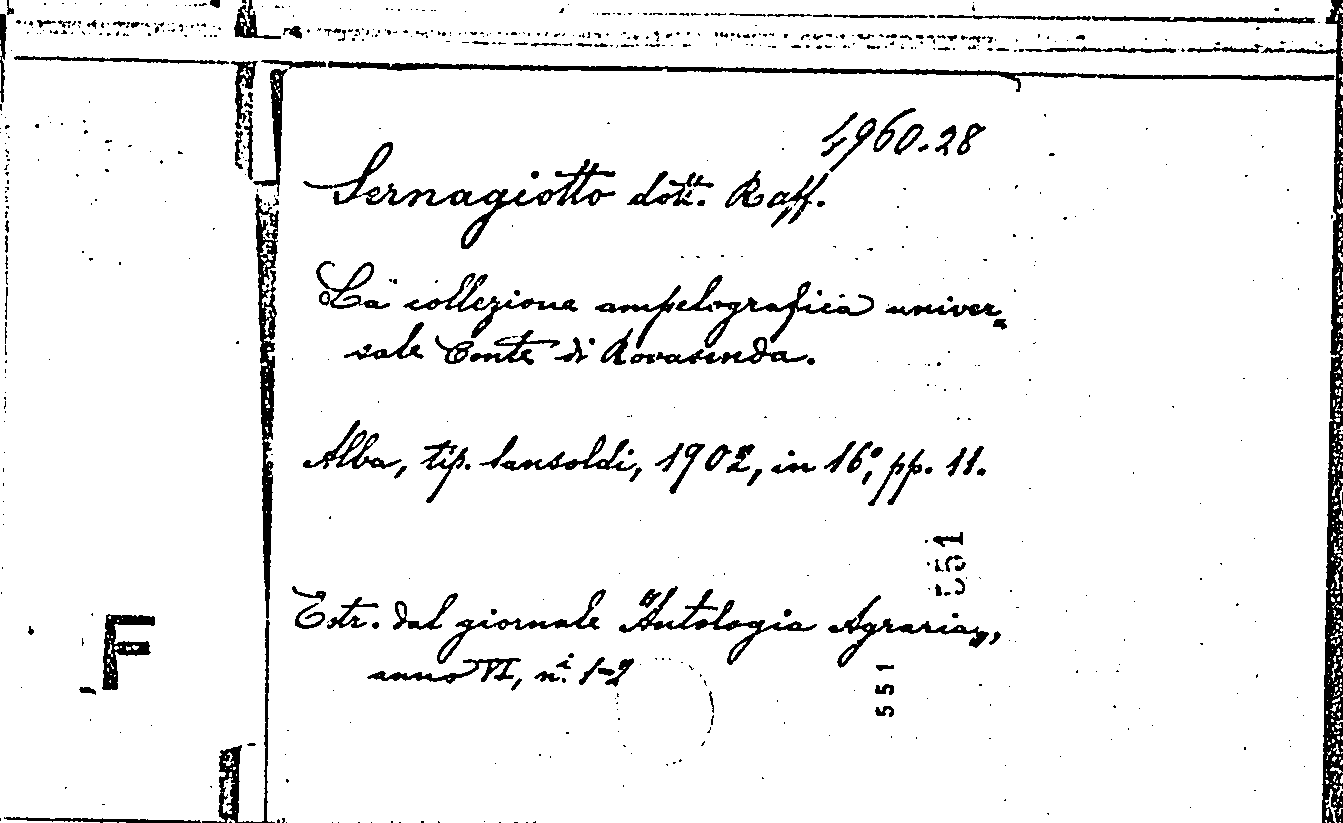 4960.28
Sernagiotto dott. Raff.
La collezione ampelografica univer=
sale Conte di Rovasenda.
Alba, tip. Sansoldi, 1902, in 16°, pp. 11.
551
Estr. dal giornale "Antologia Agraria",
anno VI, n.i 1-2
551
F